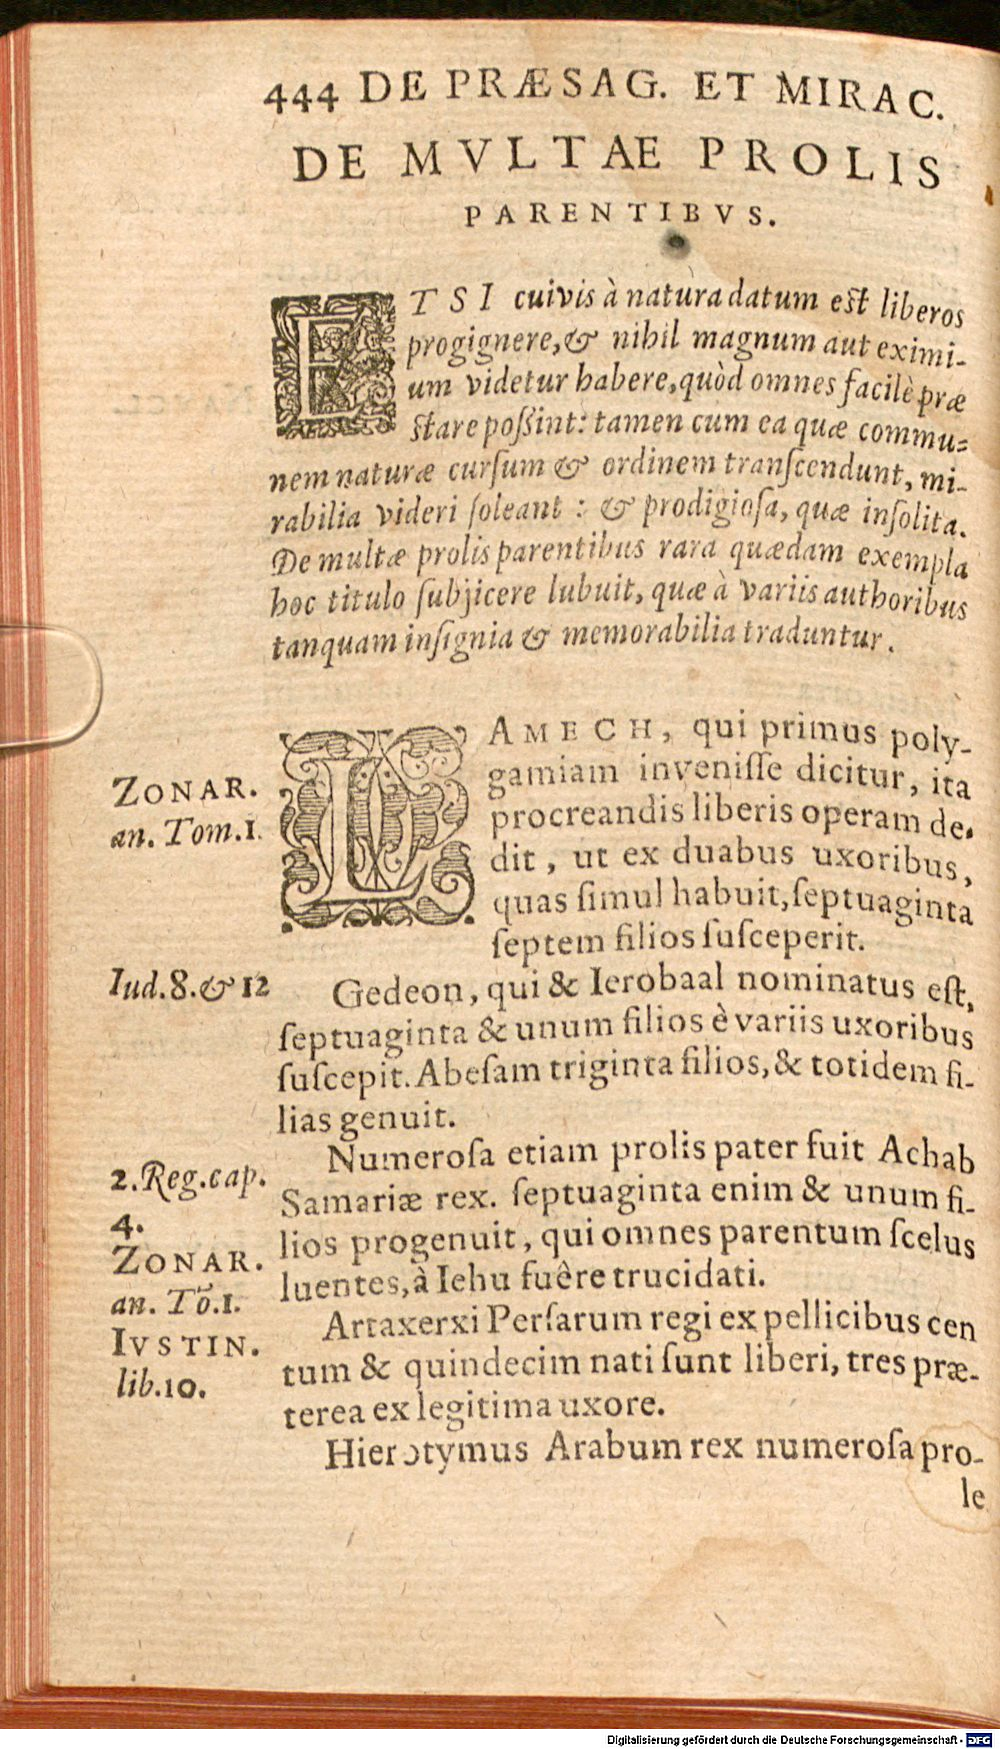 444 DE PRÆSAG. ET MIRAC.
DE MVLTAE PROLIS
PARENTIBVS.
ETSI cuivis à natura datum est liberos
progignere, & nihil magnum aut eximi-
um videtur habere, quòd omnes facilè præ
ſtare poßint: tamen cum ea quæ commu-
nem naturæ curſum & ordinem tranſcendunt, mi-
rabilia videri ſoleant : & prodigioſa, quæ inſolita.
De multæ prolis parentibus rara quædam exempla
hoc titulo ſubjicere lubuit, quæ à variis authoribus
tanquam inſignia & memorabilia traduntur.
LAMECH, qui primus poly-
gamiam inveniſſe dicitur, ita
procreandis liberis operam de-
dit, ut ex duabus uxoribus,
quas ſimul habuit, ſeptuaginta
ſeptem filios ſuſceperit.
ZONAR.
an. Tom.1.
Iud.8.& 12
Gedeon, qui & Ierobaal nominatus eſt,
ſeptuaginta & unum filios è variis uxoribus
ſuſcepit. Abeſam triginta filios, & totidem fi-
lias genuit.
Numeroſa etiam prolis pater fuit Achab
Samariæ rex. ſeptuaginta enim & unum fi-
lios progenuit, qui omnes parentum ſcelus
luentes, à Iehu fuêre trucidati.
2.Reg.cap.
4.
ZONAR.
an. Tō.1.
IVSTIN.
lib.10.
Artaxerxi Perſarum regi ex pellicibus cen
tum & quindecim nati ſunt liberi, tres præ-
terea ex legitima uxore.
Hierotymus Arabum rex numeroſa pro-
le
Digitalisierung gefördert durch die Deutsche Forschungsgemeinschaft - DFG